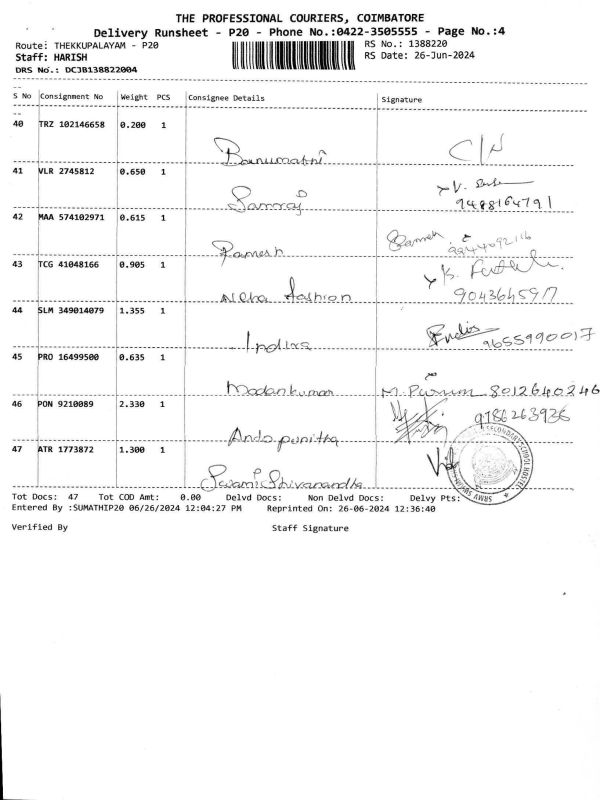 THE PROFESSIONAL COURIERS, COIMBATORE
Delivery Runsheet - P20 - Phone No.:0422-3505555 - Page No.:4
Route: THEKKUPALAYAM - P20
RS No.: 1388220
Staff: HARISH
RS Date: 26-Jun-2024
DRS No.: DCJB138822004
S No Consignment No Weight PCS Consignee Details Signature
40 TRZ 102146658 0.200 1
Banumathi C/N
41 VLR 2745812 0.650 1
9488164791
42 MAA 574102971 0.615 1
Ramesh Ramesh 9244092116
43 TCG 41048166 0.905 1
Neha fashion
44 SLM 349014079 1.355 1
Indira 9655990017
45 PRO 16499500 0.635 1
Madankumar 8012640246
46 PON 9210089 2.330 1
Ando punitha 9786263936
47 ATR 1773872 1.300 1
Swami Shivanandha
Tot Docs: 47 Tot COD Amt: 0.00 Delvd Docs: Non Delvd Docs: Delvy Pts:
Entered By :SUMATHIP20 06/26/2024 12:04:27 PM Reprinted On: 26-06-2024 12:36:40
Verified By Staff Signature